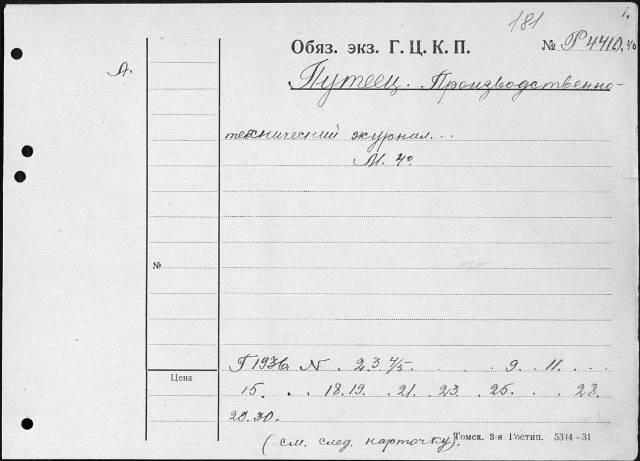 181
1.
Обяз. экз. Г. Ц. К. П. № Р4410.40
А.
Путеец. Производственно-
технический журнал...
М. 4°
№
Г 1936 N . 2 3 4/5 . . . 9 . 11 . . .
Цена
15 . . 18. 19. . 21. . 23. . 25. . . 28.
29. 30.
(см. след. карточку).
Томск. 3-я Гостип. 5344-31